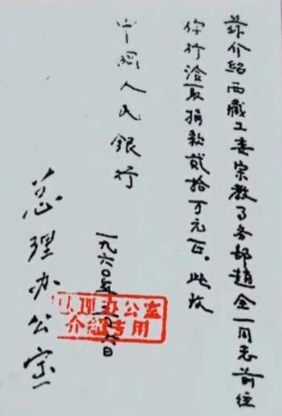 兹介绍西藏工委宗教了务部趙全一同志前往
你行洽取捐款貳拾万元正。此致
中國人民銀行
一九六〇年三月六日
总理办公室
总理办公室
介紹专用